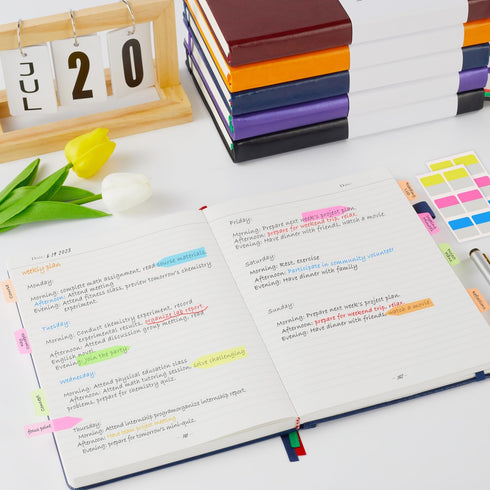 JUL
2
0
Date: 6.19 2023
weekly plan
Monday:
Morning: complete math assignment, read course materials.
Afternoon: Attend meeting
Evening: Attend fitness class, preview tomorrow's chemistry
experiment.
Tuesday:
Morning: Conduct chemistry experiment, record
experimental results, organize lab report
Afternoon: Attend discussion group meeting, read
English novel
Evening: Join the party
Wednesday:
Morning: Attend physical education class
Afternoon: Attend math tutoring session, solve challenging
problems, prepare for chemistry quiz.
Thursday:
Morning: Attend internship programorganize internship report
Afternoon: Have team project meeting
Evening: prepare for tomorrow's mini-quiz.
Date:
Friday:
Morning: Prepare next week's project plan.
Afternoon: prepare for weekend trip, relax.
Evening: Have dinner with friends, watch a movie.
Saturday:
Morning: Rest, exercise
Afternoon: Participate in community volunteer!
Evening: Have dinner with family
Sunday:
Morning: Prepare next week's project plan.
Afternoon: prepare for weekend trip, relax.
Evening: Have dinner with friends, watch a movie.